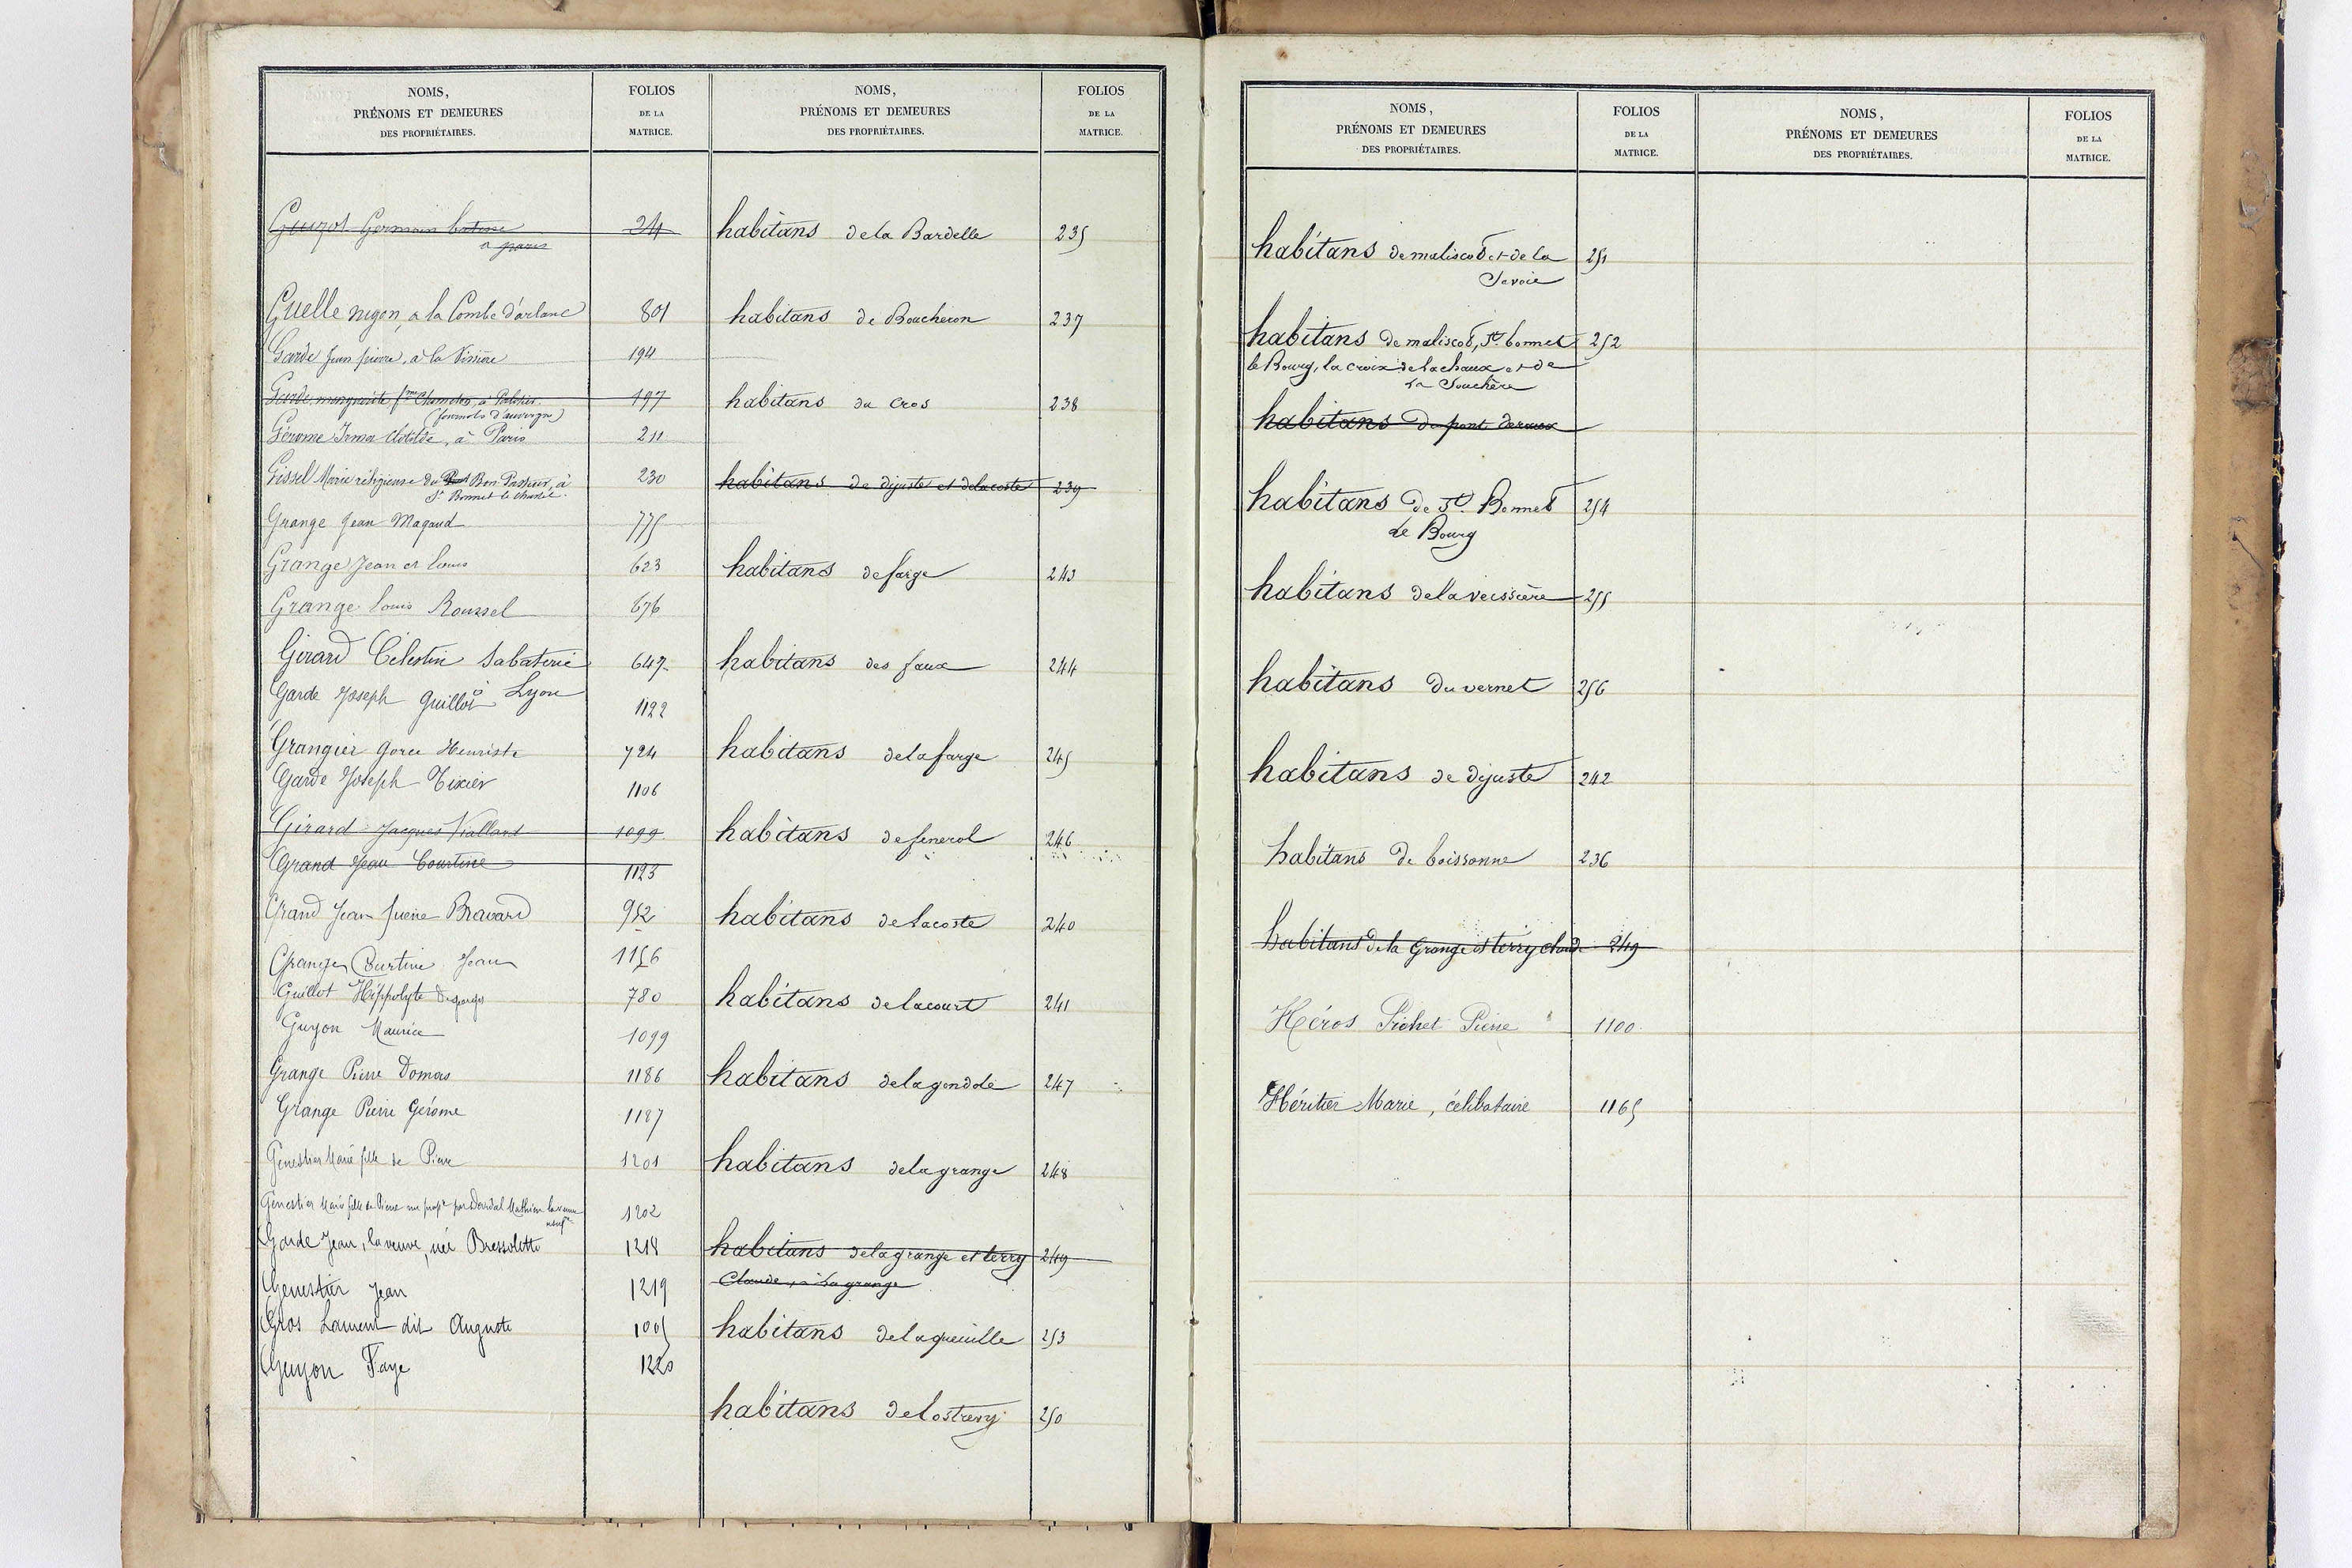 NOMS,
PRÉNOMS ET DEMEURES
DES PROPRIÉTAIRES.
FOLIOS
DE LA
MATRICE.
Guyot Germain
a paris 24
Guelle nugon, a la Combe d'arlanc 801
Garde Jean pierre, a la Vissière 194
Garde marguerite fme Chometon, a
(fournols d'auvergne) 197
Gérome Irma Clotilde, à Paris 211
Gissel Marie réligieuse du Bon Pasteur, à 230
St Bonnet le Chastel.
Grange Jean Magaud 775
Grange Jean et louis 623
Grange louis Roussel 676
Girard Célestin Sabaterie 647
Garde Joseph Guillot à Lyon 1122
Grangier Gorce Henriste 724
Garde Joseph Tixier 1106
Girard Jacques Viallard 1099
Grand Jean Courtine 1123
Grand Jean pierre Bravard 952
Grange Courtine Jean 1156
Guillot Hippolyte Degeorges 780
Guyon Maurice 1099
Grange Pierre Domas 1186
Grange Pierre Gérome 1187
Genestier Marie fille de Pierre 1201
Genestier Marie fille de Pierre nue propre par Dourdal Mathieu la veuve 1202
usufre
Garde Jean, la veuve, née Bressolette 1218
Genestier Jean 1219
Gros Laurent dit Auguste 1005
Guyon Faye 1220
NOMS,
PRÉNOMS ET DEMEURES
DES PROPRIÉTAIRES.
FOLIOS
DE LA
MATRICE.
habitans de la Bardelle 235
habitans de Boucheron 237
habitans du Cros 238
habitans de dijuste et delacoste 239
habitans de farge 243
habitans des faux 244
habitans de la farge 245
habitans de fenerol 246
habitans de lacoste 240
habitans de lacourt 241
habitans de lagondole 247
habitans de lagrange 248
habitans de lagrange et terry 249
Claude, à La grange
habitans de laqueuille 253
habitans de lostrevy 250
NOMS,
PRÉNOMS ET DEMEURES
DES PROPRIÉTAIRES.
FOLIOS
DE LA
MATRICE.
habitans de maliscot et de la 251
Savoie
habitans de maliscot, St. bonnet 252
le Bourg, la croix de lachaux et de
la Souchère
habitans du pont
habitans de St. Bonnet 254
le Bourg
habitans de la veissière 255
habitans du vernet 256
habitans de dijuste 242
habitans de boissonne 236
habitans de la Grange et terry claude 249
Héros Pichet Pierre 1100
Héritier Marie, célibataire 1165
NOMS,
PRÉNOMS ET DEMEURES
DES PROPRIÉTAIRES.
FOLIOS
DE LA
MATRICE.